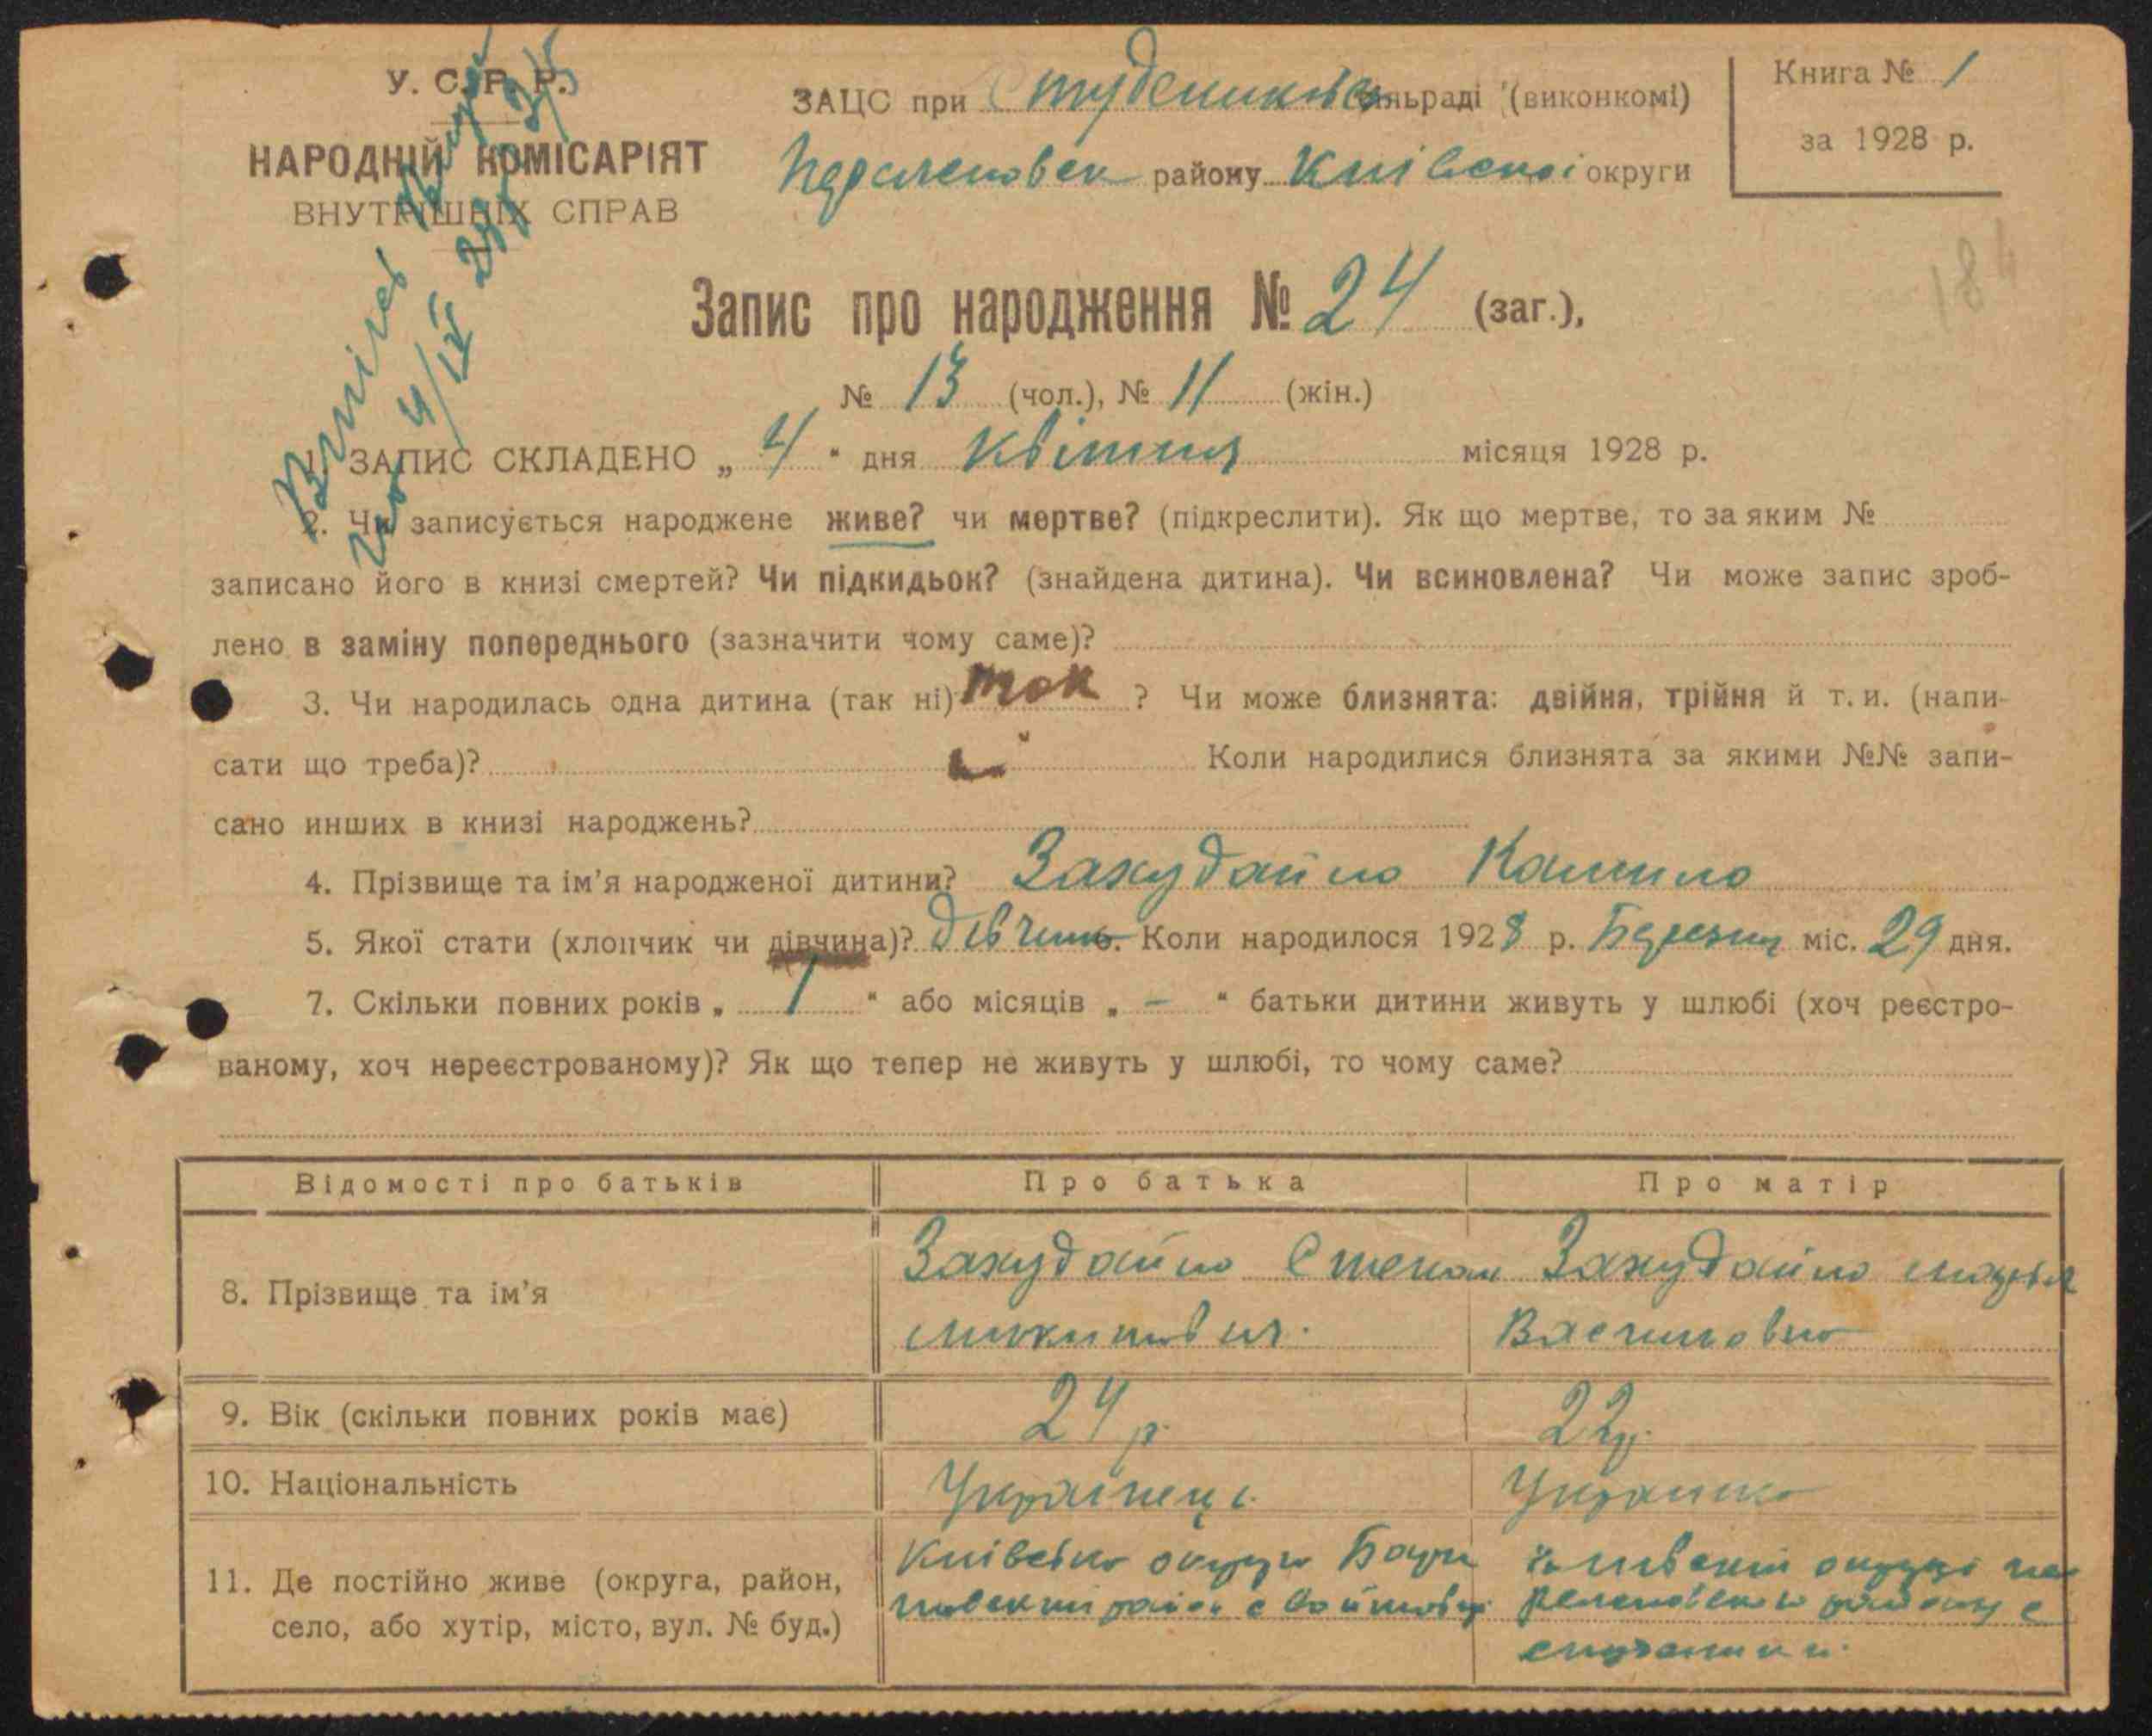 У. С. Р. Р.
НАРОДНІЙ КОМІСАРІЯТ
ВНУТРІШНІХ СПРАВ
ЗАЦС при Студениківс сільраді (виконкомі)
району Київської округи
Книга № 1
за 1928 р.
184
Запис про народження № 24 (заг.),
№ 13 (чол.), № 11 (жін.)
1. ЗАПИС СКЛАДЕНО „ 4 “ дня квітня місяця 1928 р.
2. Чи записується народжене живе? чи мертве? (підкреслити). Як що мертве, то за яким №
записано його в книзі смертей? Чи підкидьок? (знайдена дитина). Чи всиновлена? Чи може запис зроб-
лено в заміну попереднього (зазначити чому саме)?
3. Чи народилась одна дитина (так ні) так ? Чи може близнята: двійня, трійня й т. и. (напи-
сати що треба)? Коли народилися близнята за якими №№ запи-
сано инших в книзі народжень?
4. Прізвище та ім’я народженої дитини? Захудайло
5. Якої стати (хлопчик чи дівчина)? дівчина. Коли народилося 1928 р. Березня міс. 29 дня.
7. Скільки повних років „ 1 “ або місяців „ – “ батьки дитини живуть у шлюбі (хоч реєстро-
ваному, хоч нереєстрованому)? Як що тепер не живуть у шлюбі, то чому саме?
Відомості про батьків Про батька Про матір
8. Прізвище та ім’я Захудайло Степан Захудайло марія
микитович. Василовна
9. Вік (скільки повних років має) 24 р. 22р.
10. Національність Українець. Украинка
11. Де постійно живе (округа, район, село, або хутір, місто, вул. № буд.) Київська округа